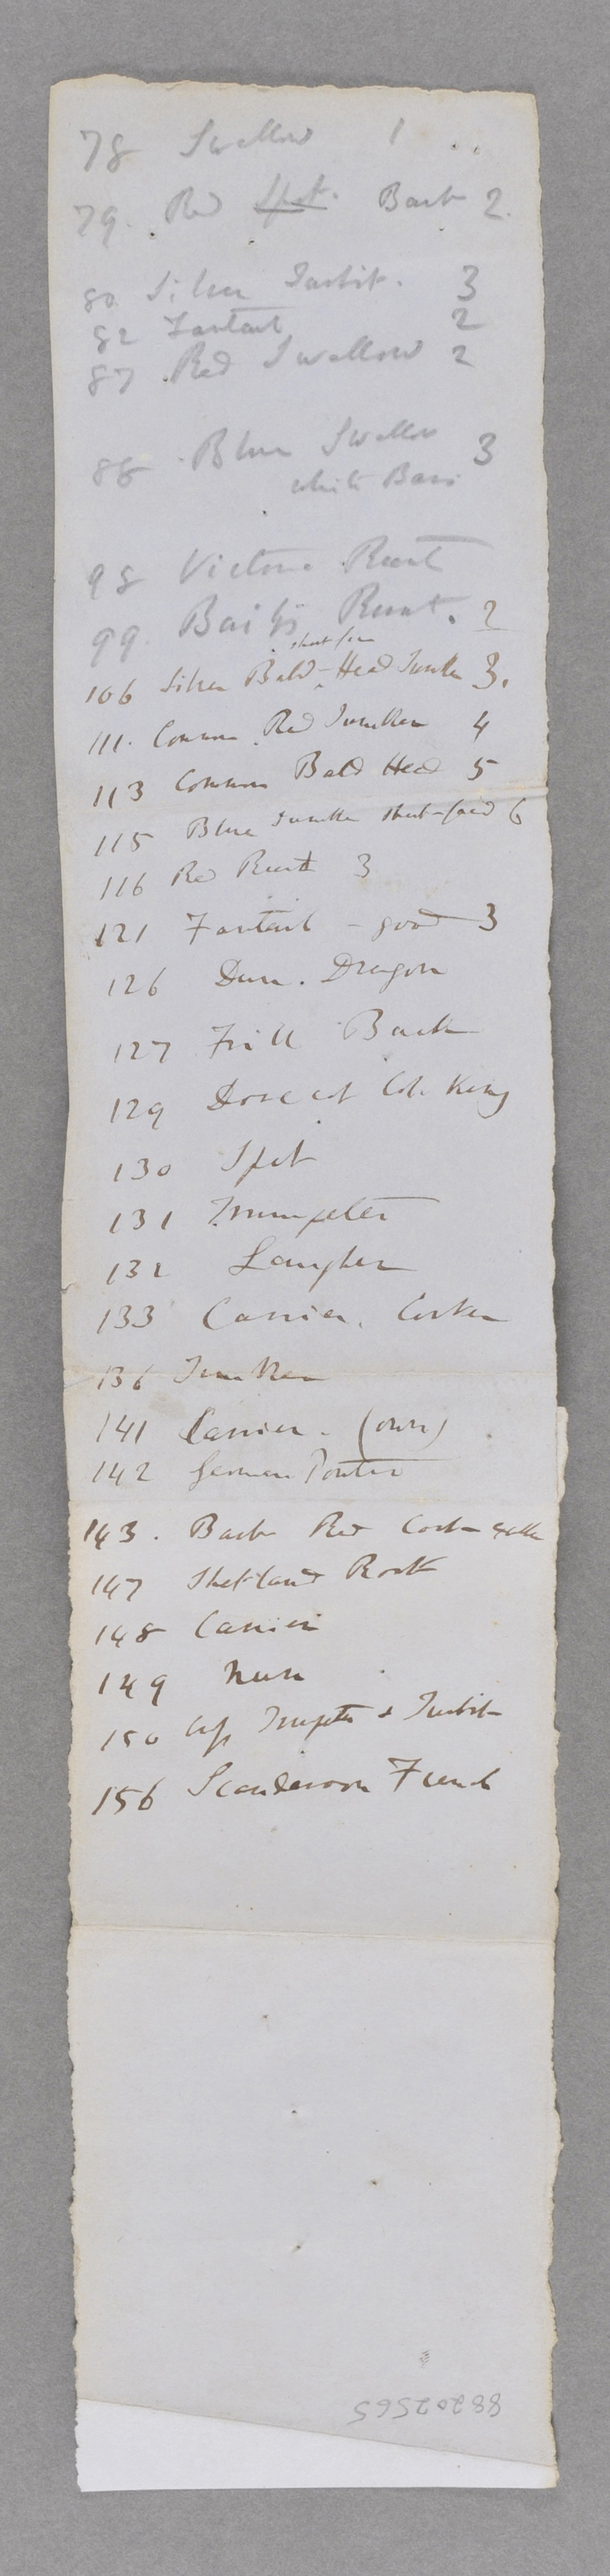 78 Swallow 1
79. Red Spot. Barb 2.
80 Silver Turbit. 3
82 Fantail 2
87 Red Swallow 2
88 Blue Swallow 3
white Bars
98 Victoria Runt
99. Baily's Runt. 2
short face
106 Silver Bald-Head Tumbler 3.
111. Common Red Tumbler 4
113 Common Bald Head 5
115 Blue Tumbler short-faced 6
116 Red Runt 3
121 Fantail - good 3
126 Dun. Dragon
127 Frill Back
129 Dovecot Col. King
130 Spot
131 Trumpeter
132 Laugher
133 Carrier. Corker
136 Tumbler
141 Carrier. (own)
142 German Pouter
143. Barb Red Cock
147 Shetland Rock
148 Carrier
149 Nun
150 Trumpeter & Turbit
156 Scanderoon French
88202565